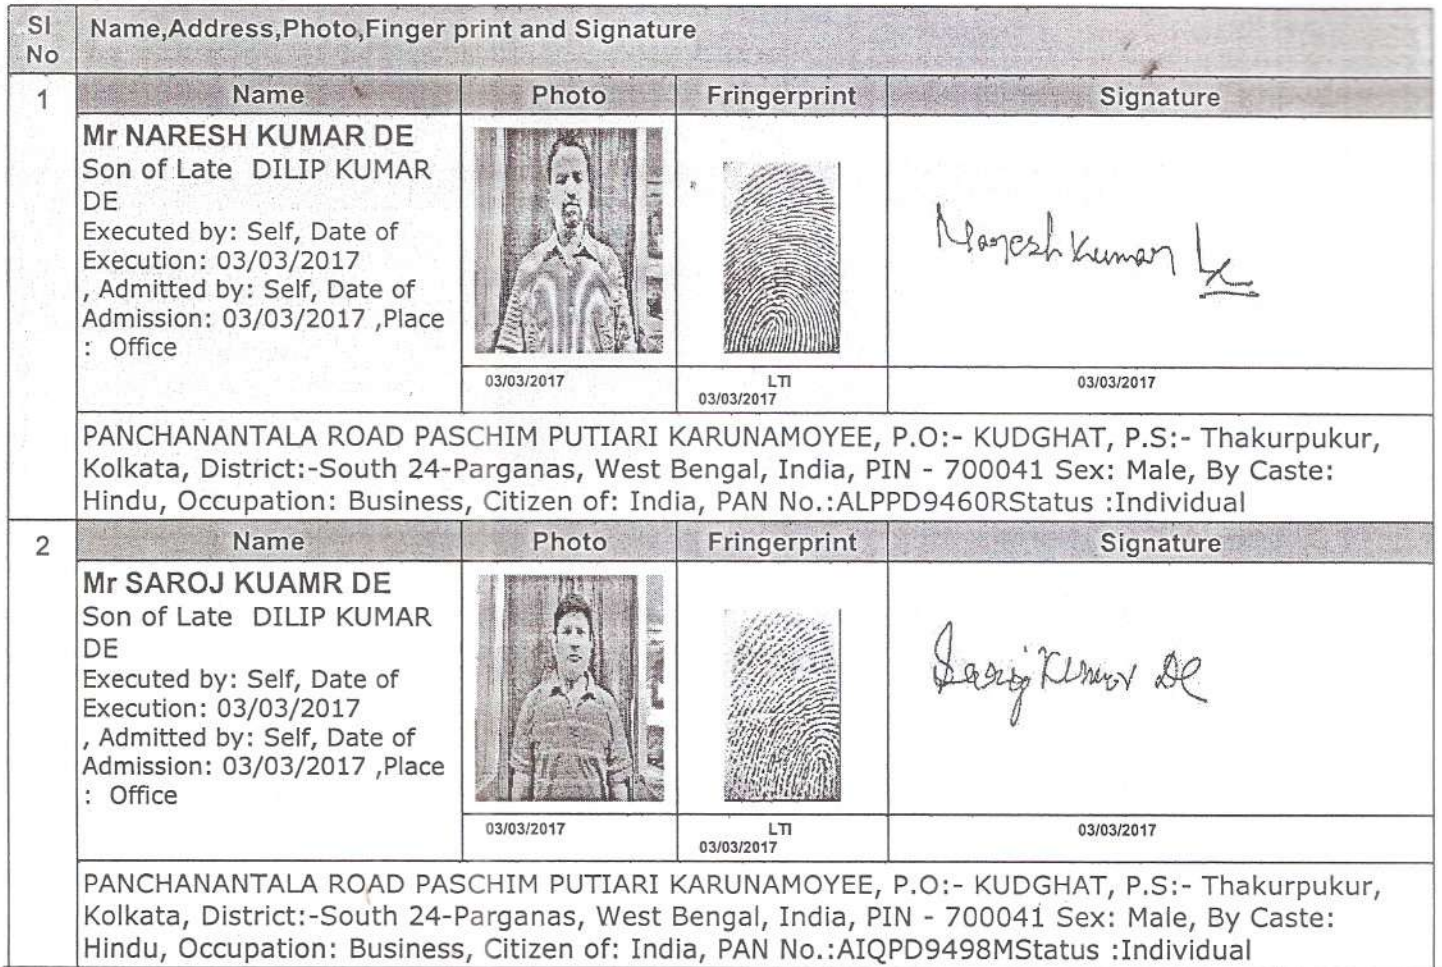 Sl
No
Name,Address,Photo,Finger print and Signature
1
Name Photo Fringerprint Signature
Mr NARESH KUMAR DE
Son of Late DILIP KUMAR
DE
Executed by: Self, Date of
Execution: 03/03/2017
, Admitted by: Self, Date of
Admission: 03/03/2017 ,Place
: Office
Naresh Kumar De
03/03/2017
LTI
03/03/2017
03/03/2017
PANCHANANTALA ROAD PASCHIM PUTIARI KARUNAMOYEE, P.O:- KUDGHAT, P.S:- Thakurpukur,
Kolkata, District:-South 24-Parganas, West Bengal, India, PIN - 700041 Sex: Male, By Caste:
Hindu, Occupation: Business, Citizen of: India, PAN No.:ALPPD9460RStatus :Individual
2
Name Photo Fringerprint Signature
Mr SAROJ KUAMR DE
Son of Late DILIP KUMAR
DE
Executed by: Self, Date of
Execution: 03/03/2017
, Admitted by: Self, Date of
Admission: 03/03/2017 ,Place
: Office
Saroj Kumar De
03/03/2017
LTI
03/03/2017
03/03/2017
PANCHANANTALA ROAD PASCHIM PUTIARI KARUNAMOYEE, P.O:- KUDGHAT, P.S:- Thakurpukur,
Kolkata, District:-South 24-Parganas, West Bengal, India, PIN - 700041 Sex: Male, By Caste:
Hindu, Occupation: Business, Citizen of: India, PAN No.:AIQPD9498MStatus :Individual